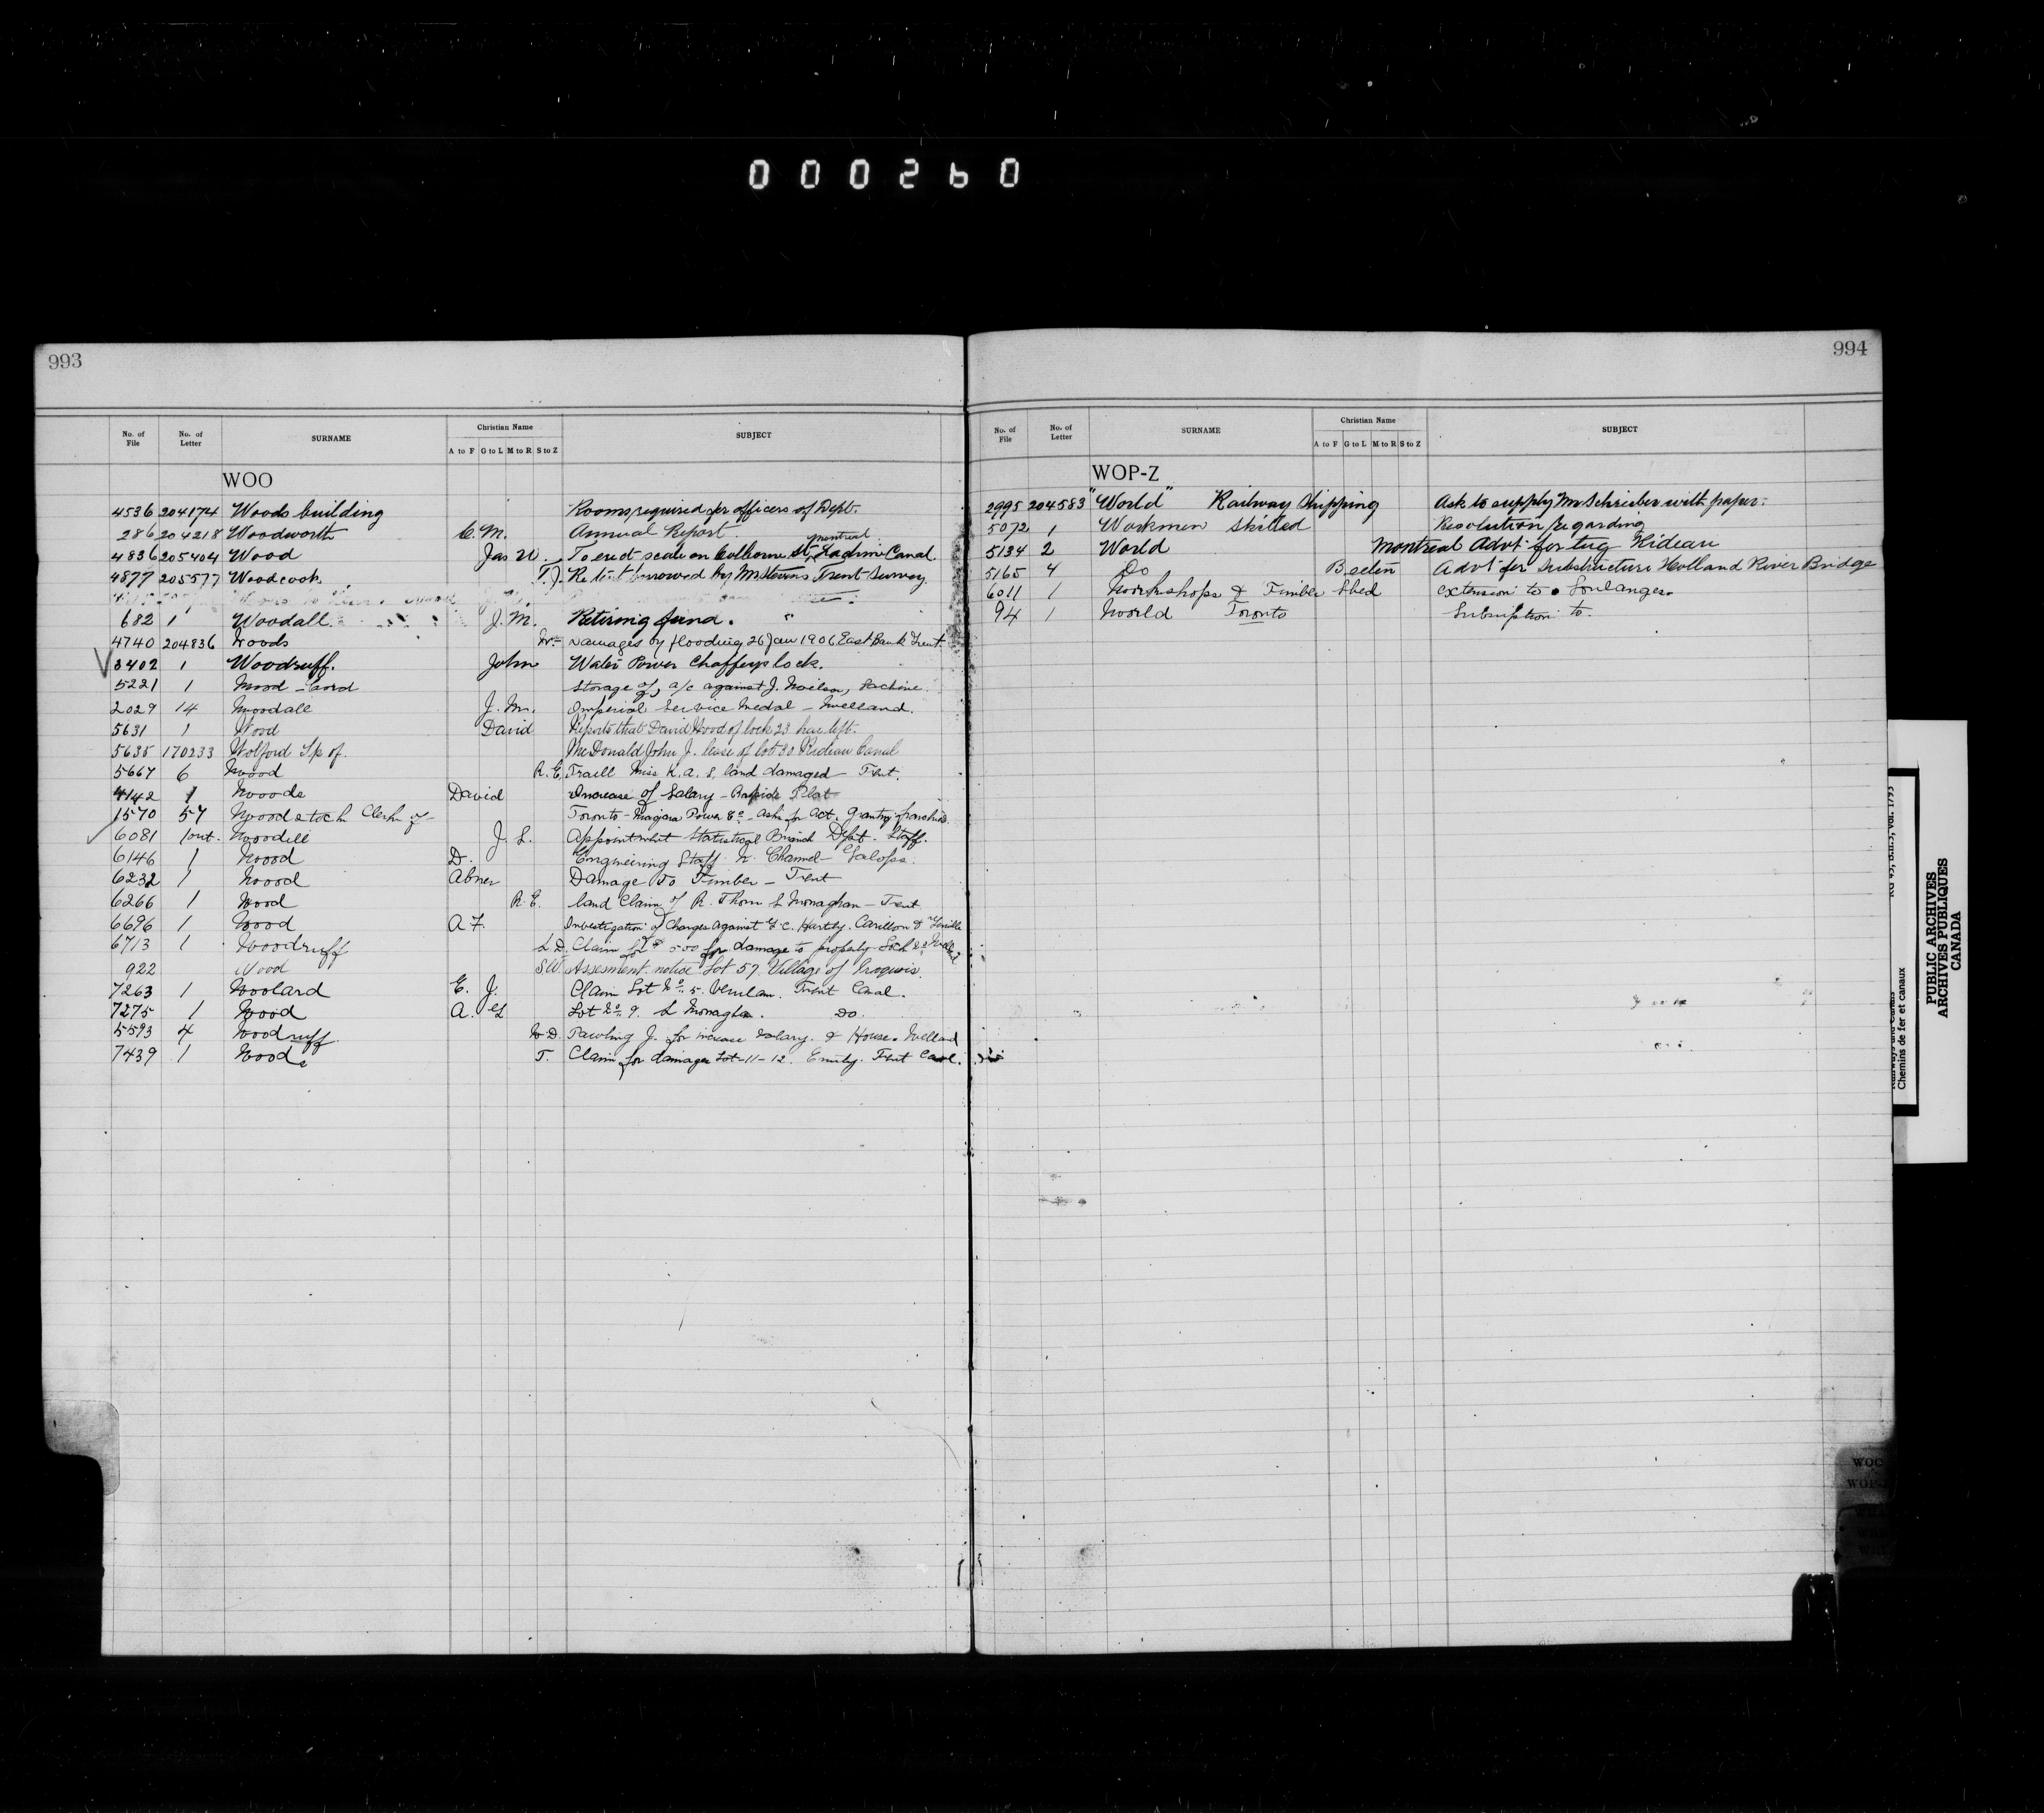 000260
993
No. of File No. of Letter SURNAME Christian Name SUBJECT
A to F G to L M to R S to Z
WOO
4536 204174 Woods building Rooms required for officers of Dept.
286 204218 Woodworth C. M. Annual Report
Montreal
4836 205404 Wood Jas W. To erect scale on Colborne St, Lachine Canal
4877 205577 Woodcock T. J. Re borrowed by Mr Stevens Trent Survey
682 1 Woodall J. M. Retiring fund.
4740 204836 Woods Wm Damages by flooding 26 Jan 1906 East Bank Trent
3402 1 Woodruff. John Water Power Chaffeys lock.
5221 1 Wood - Cord Storage of, a/c against J. Neilson, Lachine
2029 14 Woodall J. M. Imperial Service Medal - Welland.
5631 1 Wood David Reports that David Wood of lock 23 has left.
5635 170233 Wolford Tp of. McDonald John J. lease of lot 30 Rideau Canal
5667 6 Wood R. E. Traill Miss K. A. S, land damaged - Trent.
4142 1 Woods David Increase of Salary - Rapide Plat
1570 57 Woodstock Clerk of Toronto - Niagara Power Co - asks for Act. granting franchise
6081 1 out. Woodill J. L. Appointment Statistical Branch Dept. Staff.
6146 1 Wood D. Engineering Staff N. Channel - Galops.
6232 1 Wood Abner Damage to Timber - Trent
6266 1 Wood R. E. land Claim of R. Thom S Monaghan - Trent
6696 1 Wood A F. Investigation of Charges against G. C. Hartly. Carillon & Grenville
6713 1 Woodruff L. D. Claim for $500 for damage to property Lock 22 Welland
922 Wood S W. Assesment notice Lot 57 Village of Iroquois.
7263 1 Woolard E. J. Claim Lot No. 5. Verulam. Trent Canal.
7275 1 Wood A. G Lot No. 9. S Monaghan. do.
5593 4 Woodruff W D. Pawling J. for increase Salary. & House. Welland
7439 1 Woods T. Claim for damages Lot - 11 - 12. Emily. Trent Canal.
994
No. of File No. of Letter SURNAME Christian Name SUBJECT
A to F G to L M to R S to Z
WOP-Z
2995 204583 "World" Railway Shipping Ask to supply Mr Schrieber with paper.
5072 1 Workmen Skilled Resolution regarding
5134 2 World Montreal Advt. for tug Rideau
5165 4 Do Beeton Advt for Substructure Holland River Bridge
6011 1 Workshops & Timber Shed extension to Soulanges.
94 1 World Toronto Subscription to.
RG 43, B.II.3, Vol. 1795
Railways and Canals
Chemins de fer et canaux
PUBLIC ARCHIVES
ARCHIVES PUBLIQUES
CANADA
WOO
WOP-Z